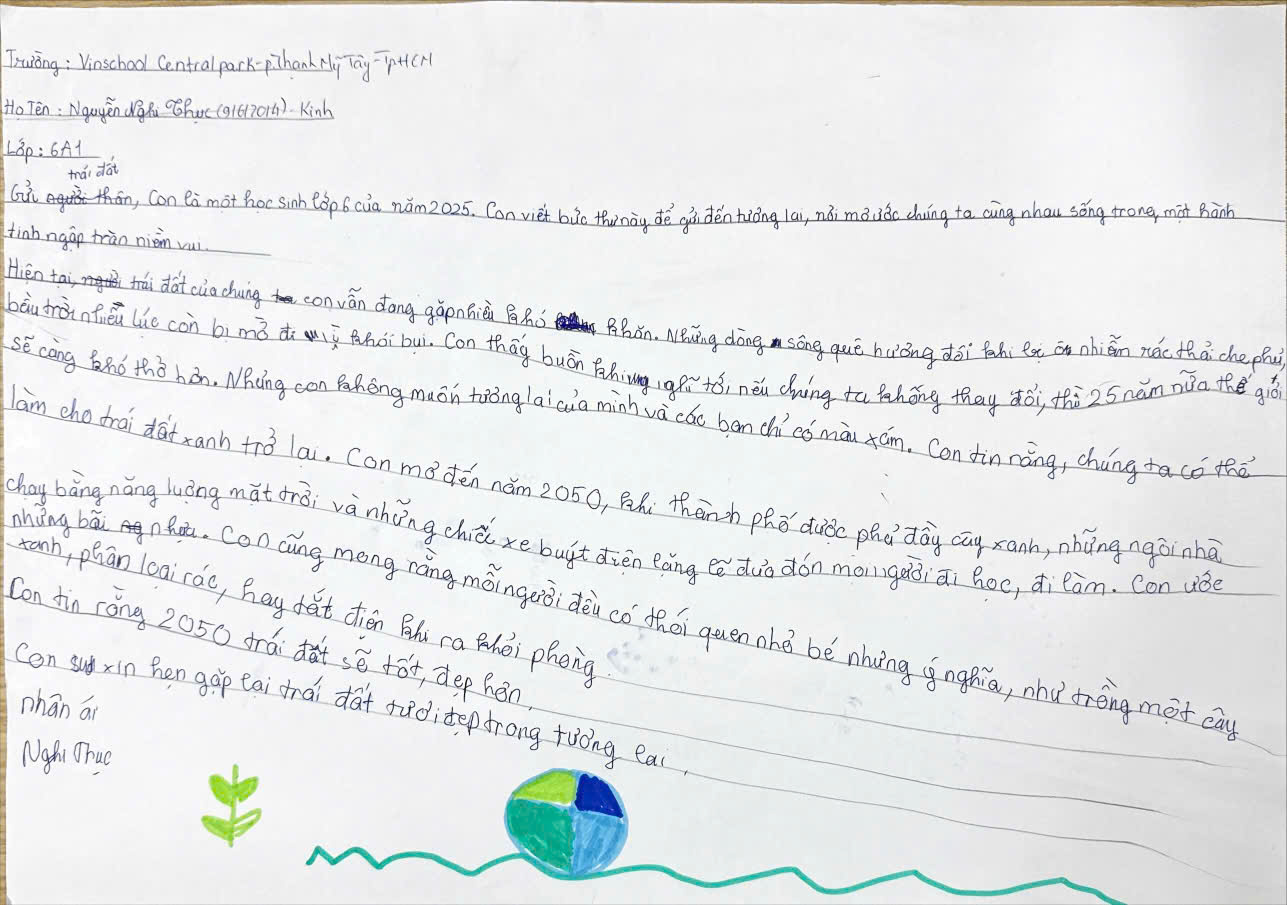 Trường: Vinschool Central park - p Thạnh Mỹ Tây - Tp HCM
Họ Tên: Nguyễn Nghi Thục (9/6/2014) - Kinh
Lớp: 6A1
trái đất
Gửi người thân, Con là một học sinh lớp 6 của năm 2025. Con viết bức thư này để gửi đến tương lai, nơi mơ ước chúng ta cùng nhau sống trong một hành
tinh ngập tràn niềm vui.
Hiện tại, người trái đất của chúng ta con vẫn đang gặp nhiều khó khăn. Những dòng sông quê hương đôi khi bị ô nhiễm rác thải che phủ,
bầu trời nhiều lúc còn bị mờ đi vì khói bụi. Con thấy buồn khi nghĩ tới nếu chúng ta không thay đổi, thì 25 năm nữa thế giới
sẽ càng khó thở hơn. Nhưng con không muốn tương lai của mình và các bạn chỉ có màu xám. Con tin rằng, chúng ta có thể
làm cho trái đất xanh trở lại. Con mơ đến năm 2050, khi thành phố được phủ đầy cây xanh, những ngôi nhà
chạy bằng năng lượng mặt trời và những chiếc xe buýt điện lặng lẽ đưa đón mọi người đi học, đi làm. Con ước
những bãi nhựa. Con cũng mong rằng mỗi người đều có thói quen nhỏ bé nhưng ý nghĩa, như trồng một cây
xanh, phân loại rác, hay tắt điện khi ra khỏi phòng.
Con tin rằng 2050 trái đất sẽ tốt, đẹp hơn.
Con xin hẹn gặp lại trái đất tươi đẹp trong tương lai.
nhân ái
Nghi Thục